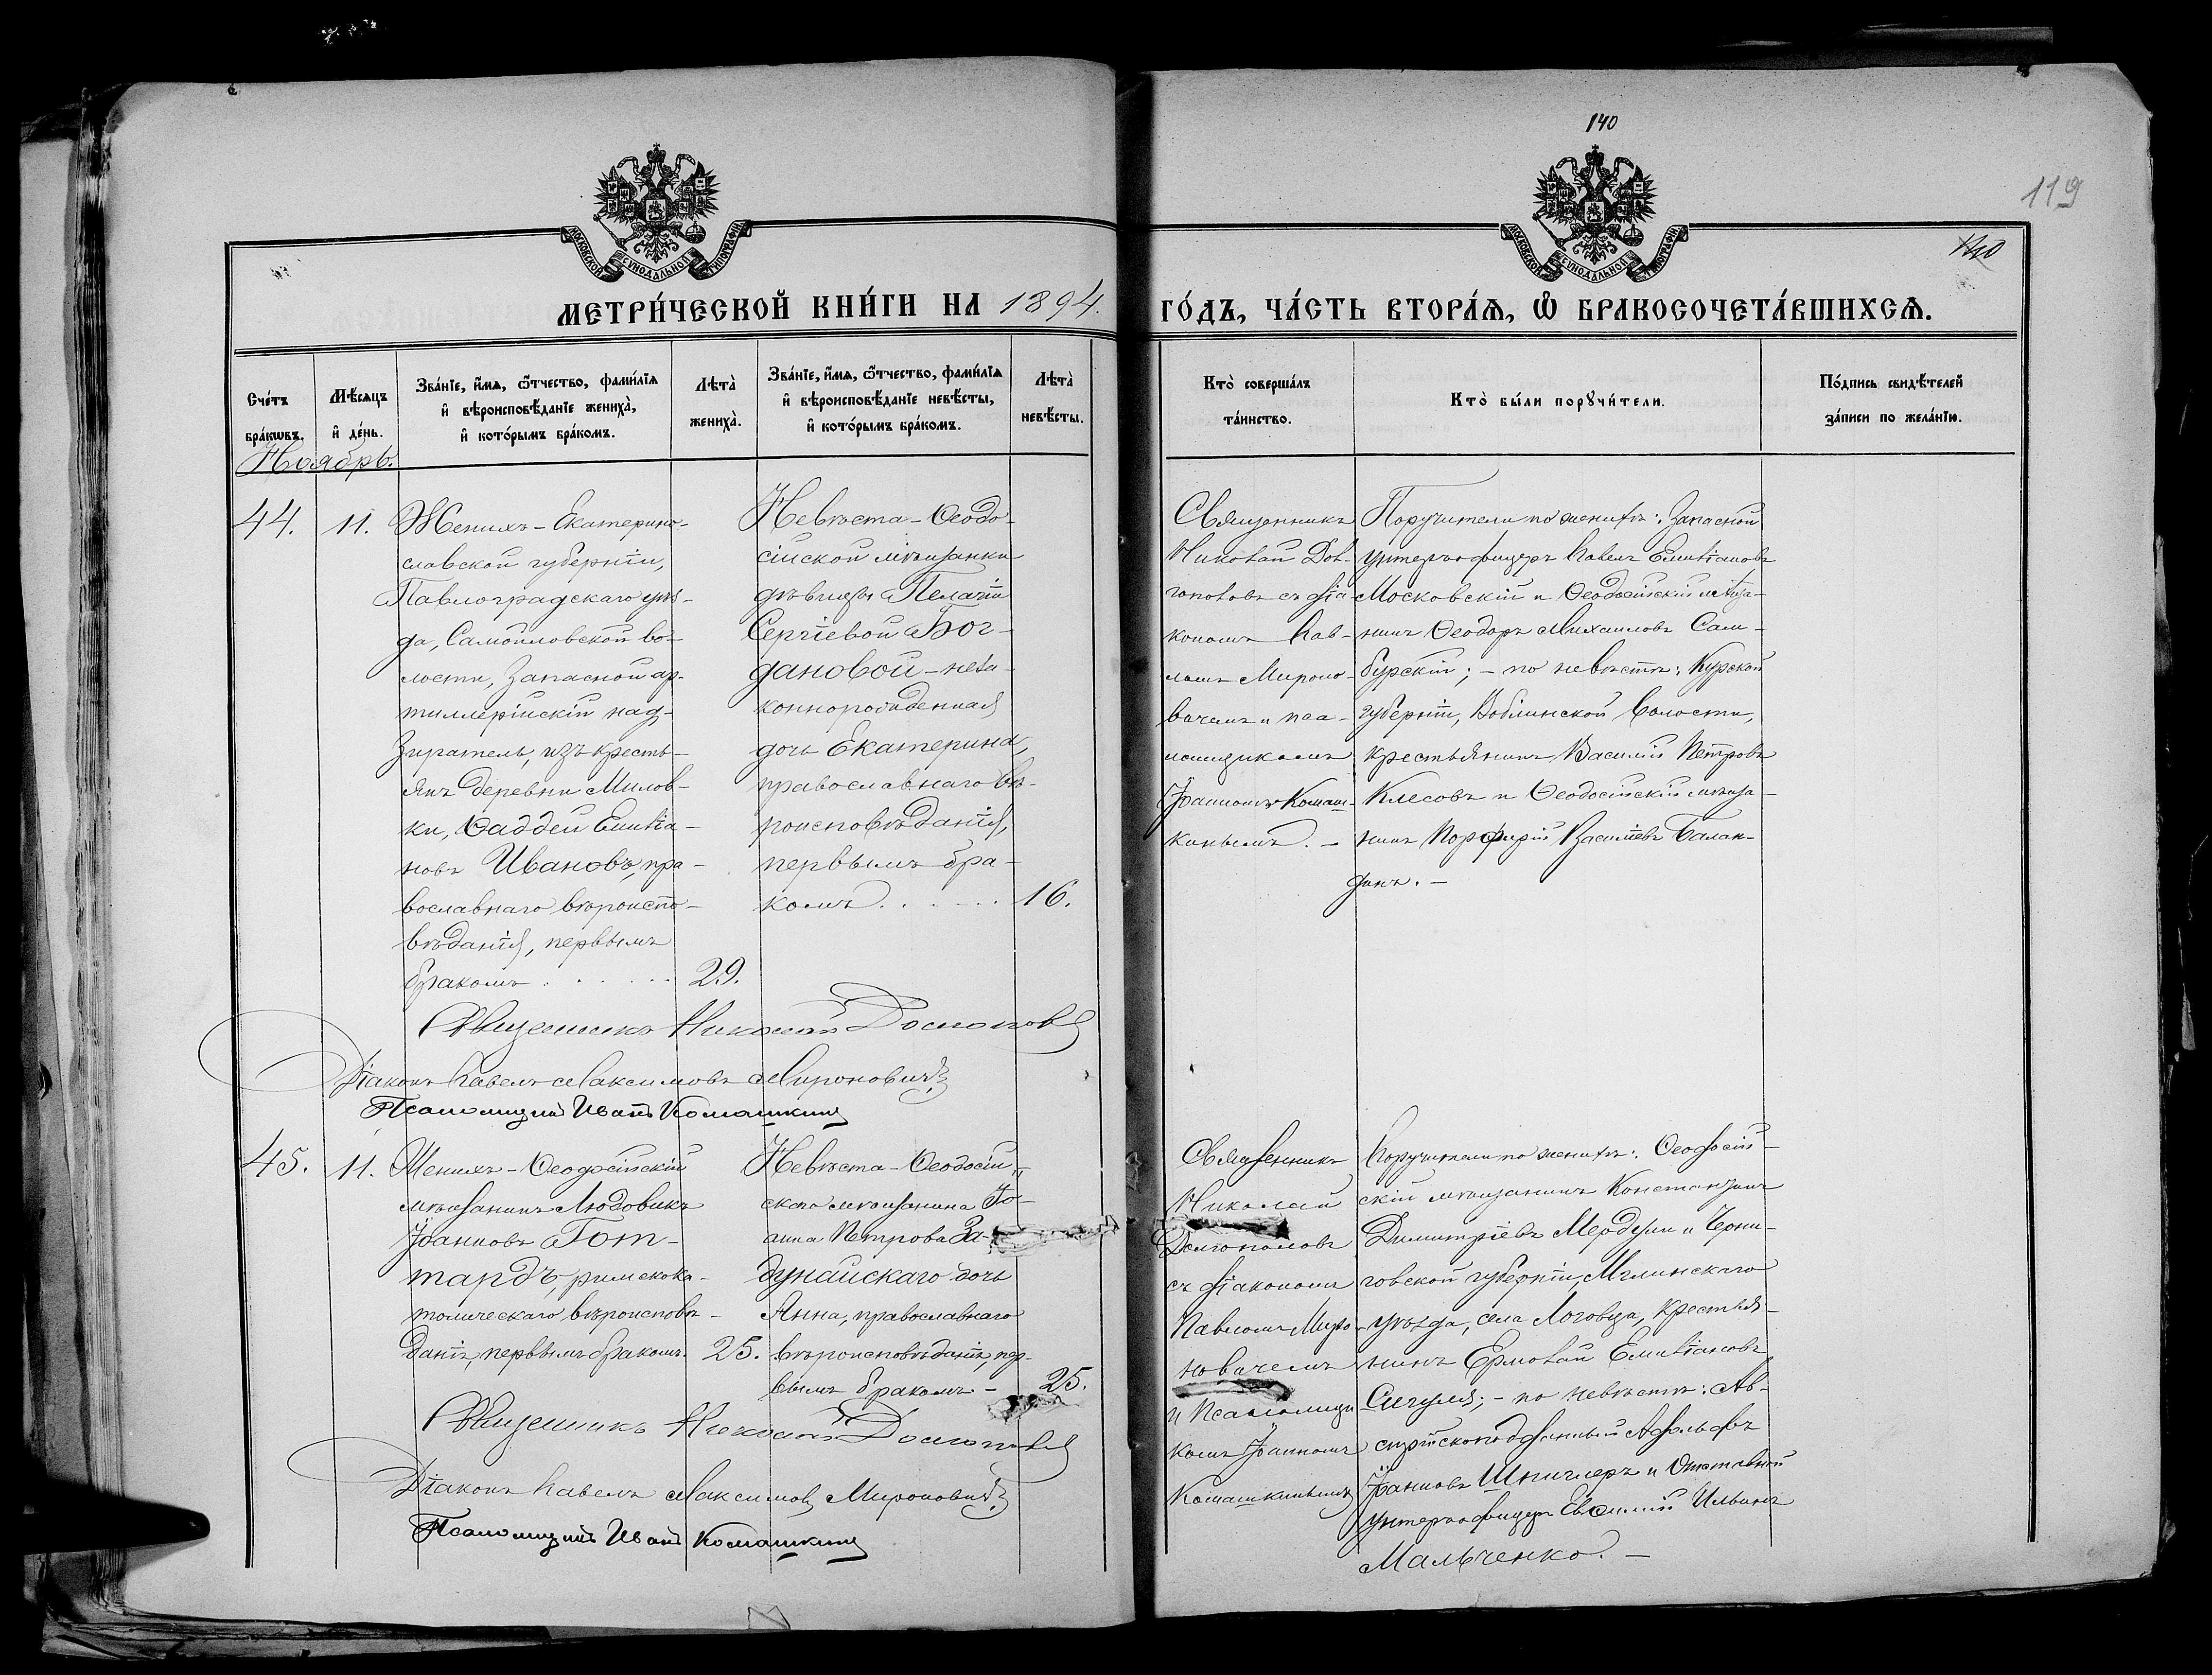 140
119
140
МОСКОВСКОЙ СУНОДАЛЬНОЙ ТИПОГРАФІИ
МОСКОВСКОЙ СУНОДАЛЬНОЙ ТИПОГРАФІИ
МЕТРИ́ЧЕСКОЙ КНИ́ГИ НА 1894.
ГО́ДЪ, ЧА́СТЬ ВТОРА́Ѧ, Ѽ БРАКОСОЧЕТА́ВШИХСѦ.
Сче́тъ бра́кѡвъ.
Мѣ́сяцъ и҆ де́нь.
Зва́нїе, и҆́мѧ, ѻ҆́тчество, фами́лїѧ
и҆ вѣроисповѣ́данїе жениха̀,
и҆ кото́рымъ бра́комъ.
Лѣта̀ жениха̀.
Зва́нїе, и҆́мѧ, ѻ҆́тчество, фами́лїѧ
и҆ вѣроисповѣ́данїе невѣ́сты,
и҆ кото́рымъ бра́комъ.
Лѣта̀ невѣ́сты.
Кто̀ соверша́лъ
та́инство.
Кто̀ бы́ли порꙋчи́тели.
По́дпись свидѣ́телей
за́писи по жела́нїю.
Ноябрь.
44.
11.
Женихъ - Екатерино-
славской губерніи,
Павлоградскаго уѣз-
да, Самойловской во-
лости, Запасной ар-
тиллерійскій над-
зиратель, изъ кресть-
янъ деревни Милов-
ки, Ѳаддей Емиліа-
новъ Ивановъ, пра-
вославнаго вѣроиспо-
вѣданія, первымъ
бракомъ . . . . . .
29.
Невѣста - Ѳеодо-
сійской мѣщанки
дѣвицы Пелагіи
Сергіевой Бог-
дановой - неза-
коннорожденная
дочь Екатерина,
православнаго вѣ-
роисповѣданія,
первымъ бра-
комъ . . . . . .
16.
Священникъ
Николай Дол-
гополовъ съ діа-
кономъ Пав-
ломъ Мироно-
вичемъ и пса-
ломщикомъ
Іоанномъ Комаш-
кинымъ. -
Поручители по женихѣ: Запасной
унтеръ-офицеръ Павелъ Емиліановъ
Московскій и Ѳеодосійскій мѣща-
нинъ Ѳеодоръ Михаиловъ Сам-
бурскій; - по невѣстѣ: Курской
губерніи, Волости,
крестьянинъ Василій Петровъ
Клесовъ и Ѳеодосійскій мѣща-
нинъ Порфирій Василіевъ Балан-
динъ. -
Священникъ Николай Долгополовъ
Діаконъ Павелъ Максимовъ Мироновичъ
Псаломщикъ Иванъ Комашкинъ
45.
11.
Женихъ - Ѳеодосійскій
мѣщанинъ Людовикъ
Іоанновъ Гот-
тардъ, римскока-
толическаго вѣроисповѣ-
данія, первымъ бракомъ.
25.
Невѣста - Ѳеодосій-
скаго мѣщанина Іо-
анна Петрова За-
дунайскаго дочь
Анна, православнаго
вѣроисповѣданія, пер-
вымъ бракомъ -
25.
Священникъ
Николай
Долгополовъ
съ діакономъ
Павломъ Миро-
новичемъ
и Псаломщи-
комъ Іоанномъ
Комашкинымъ
Поручители по женихѣ: Ѳеодосій-
скій мѣщанинъ Константинъ
Димитріевъ и Черни-
говской губерніи, Мглинскаго
уѣзда, села Логовца, крестья-
нинъ Ермолай Емиліановъ
Сигуля; - по невѣстѣ: Ав-
стрійскоподданный Адольфъ
Іоанновъ Шпиглеръ и Отставной
унтеръ-офицеръ Евѳимій Ильинъ
Мальченко. -
Священникъ Николай Долгополовъ
Діаконъ Павелъ Максимовъ Мироновичъ
Псаломщикъ Иванъ Комашкинъ